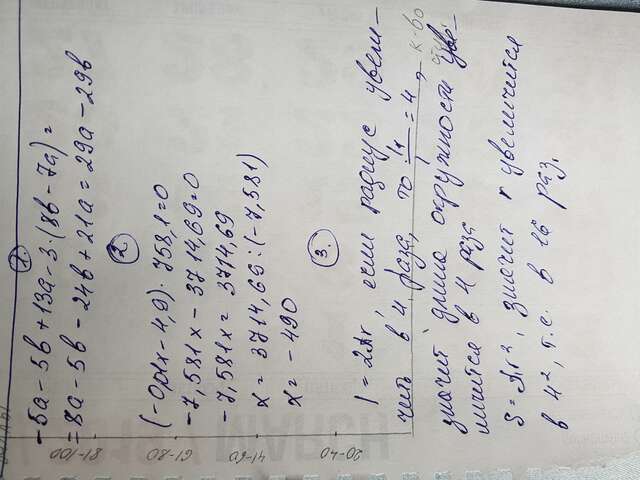 1.
-5a-5b+13a-3·(8b-7a)=
=8a-5b-24b+21a=29a-29b
2.
(-0,01x-4,9)·758,1=0
-7,581x-3714,69=0
-7,581x=3714,69
x=3714,69:(-7,581)
x=-490
3.
l=2πr, если радиус увели-
чить в 4 раза, то l₁/l=4,
значит длина окружности уве-
личится в 4 раза
S=πr², значит r увеличится
в 4², т.е. в 16 раз.
81-100
61-80
41-60
20-40